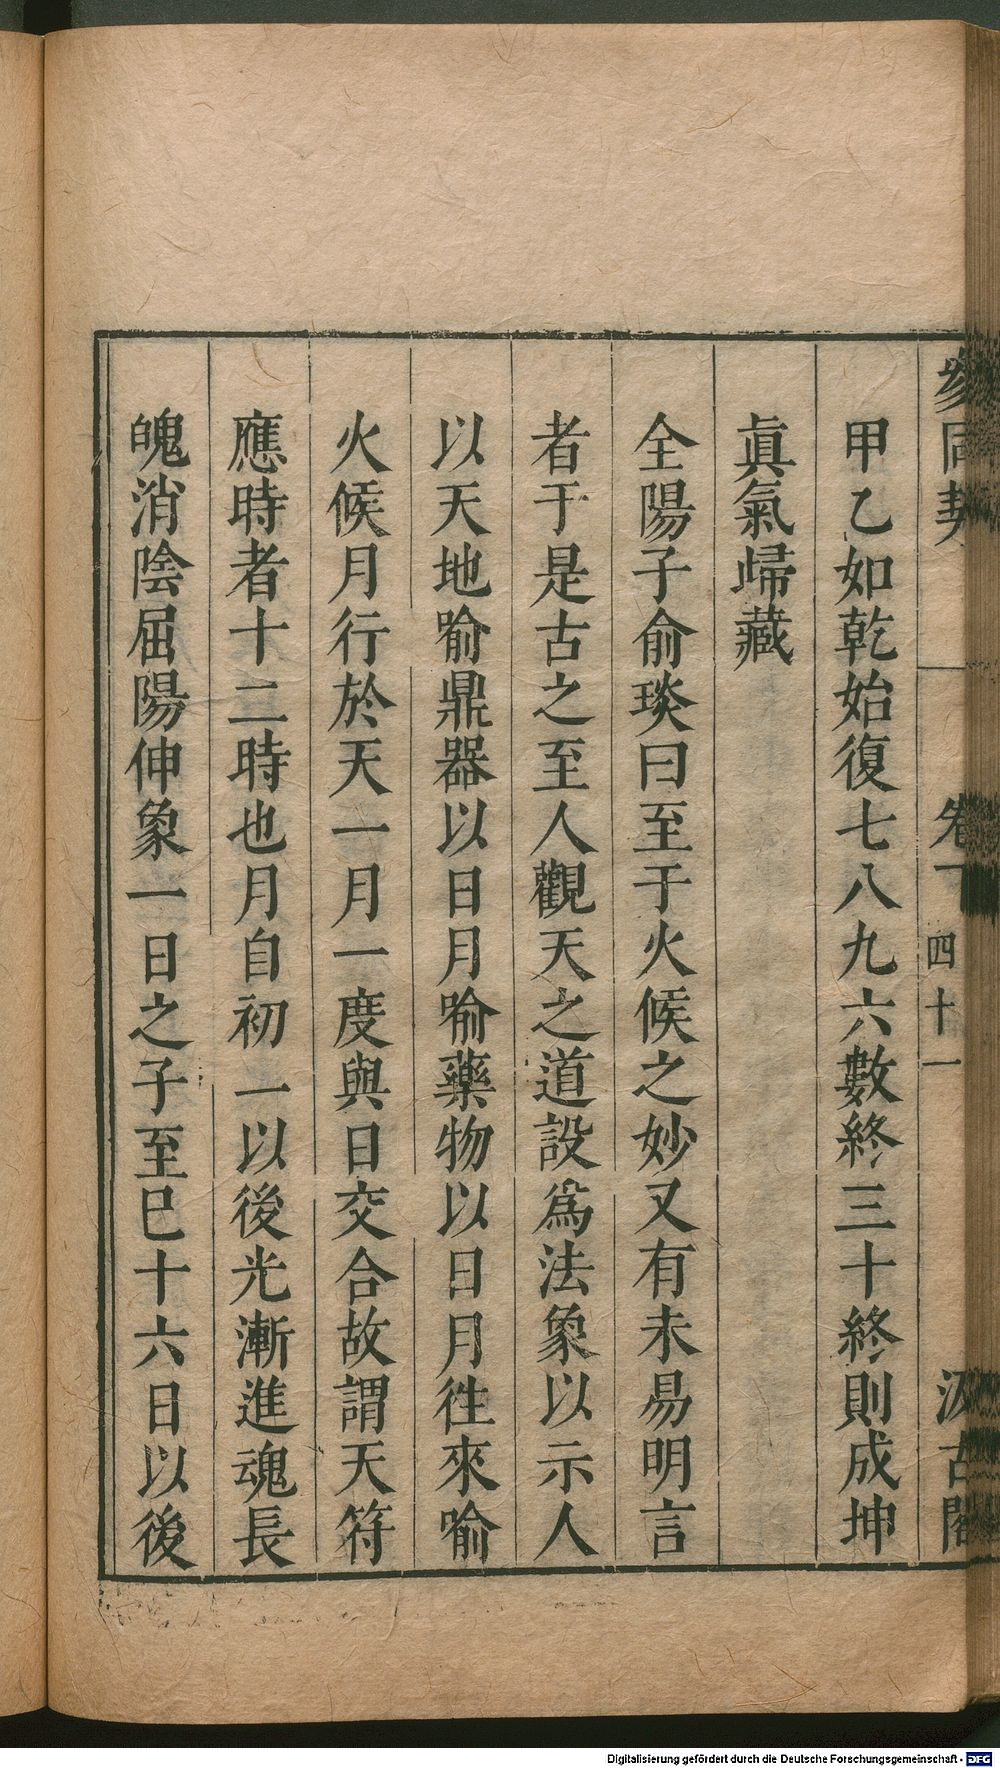 參同契 卷下 四十一 汲古閣
甲乙如乾始復七八九六數終三十終則成坤
眞氣歸藏
全陽子俞琰曰至于火候之妙又有未易明言
者于是古之至人觀天之道設爲法象以示人
以天地喻鼎器以日月喻藥物以日月徃來喻
火候月行於天一月一度與日交合故謂天符
應時者十二時也月自初一以後光漸進魂長
魄消陰屈陽伸象一日之子至巳十六日以後
Digitalisierung gefördert durch die Deutsche Forschungsgemeinschaft - DFG